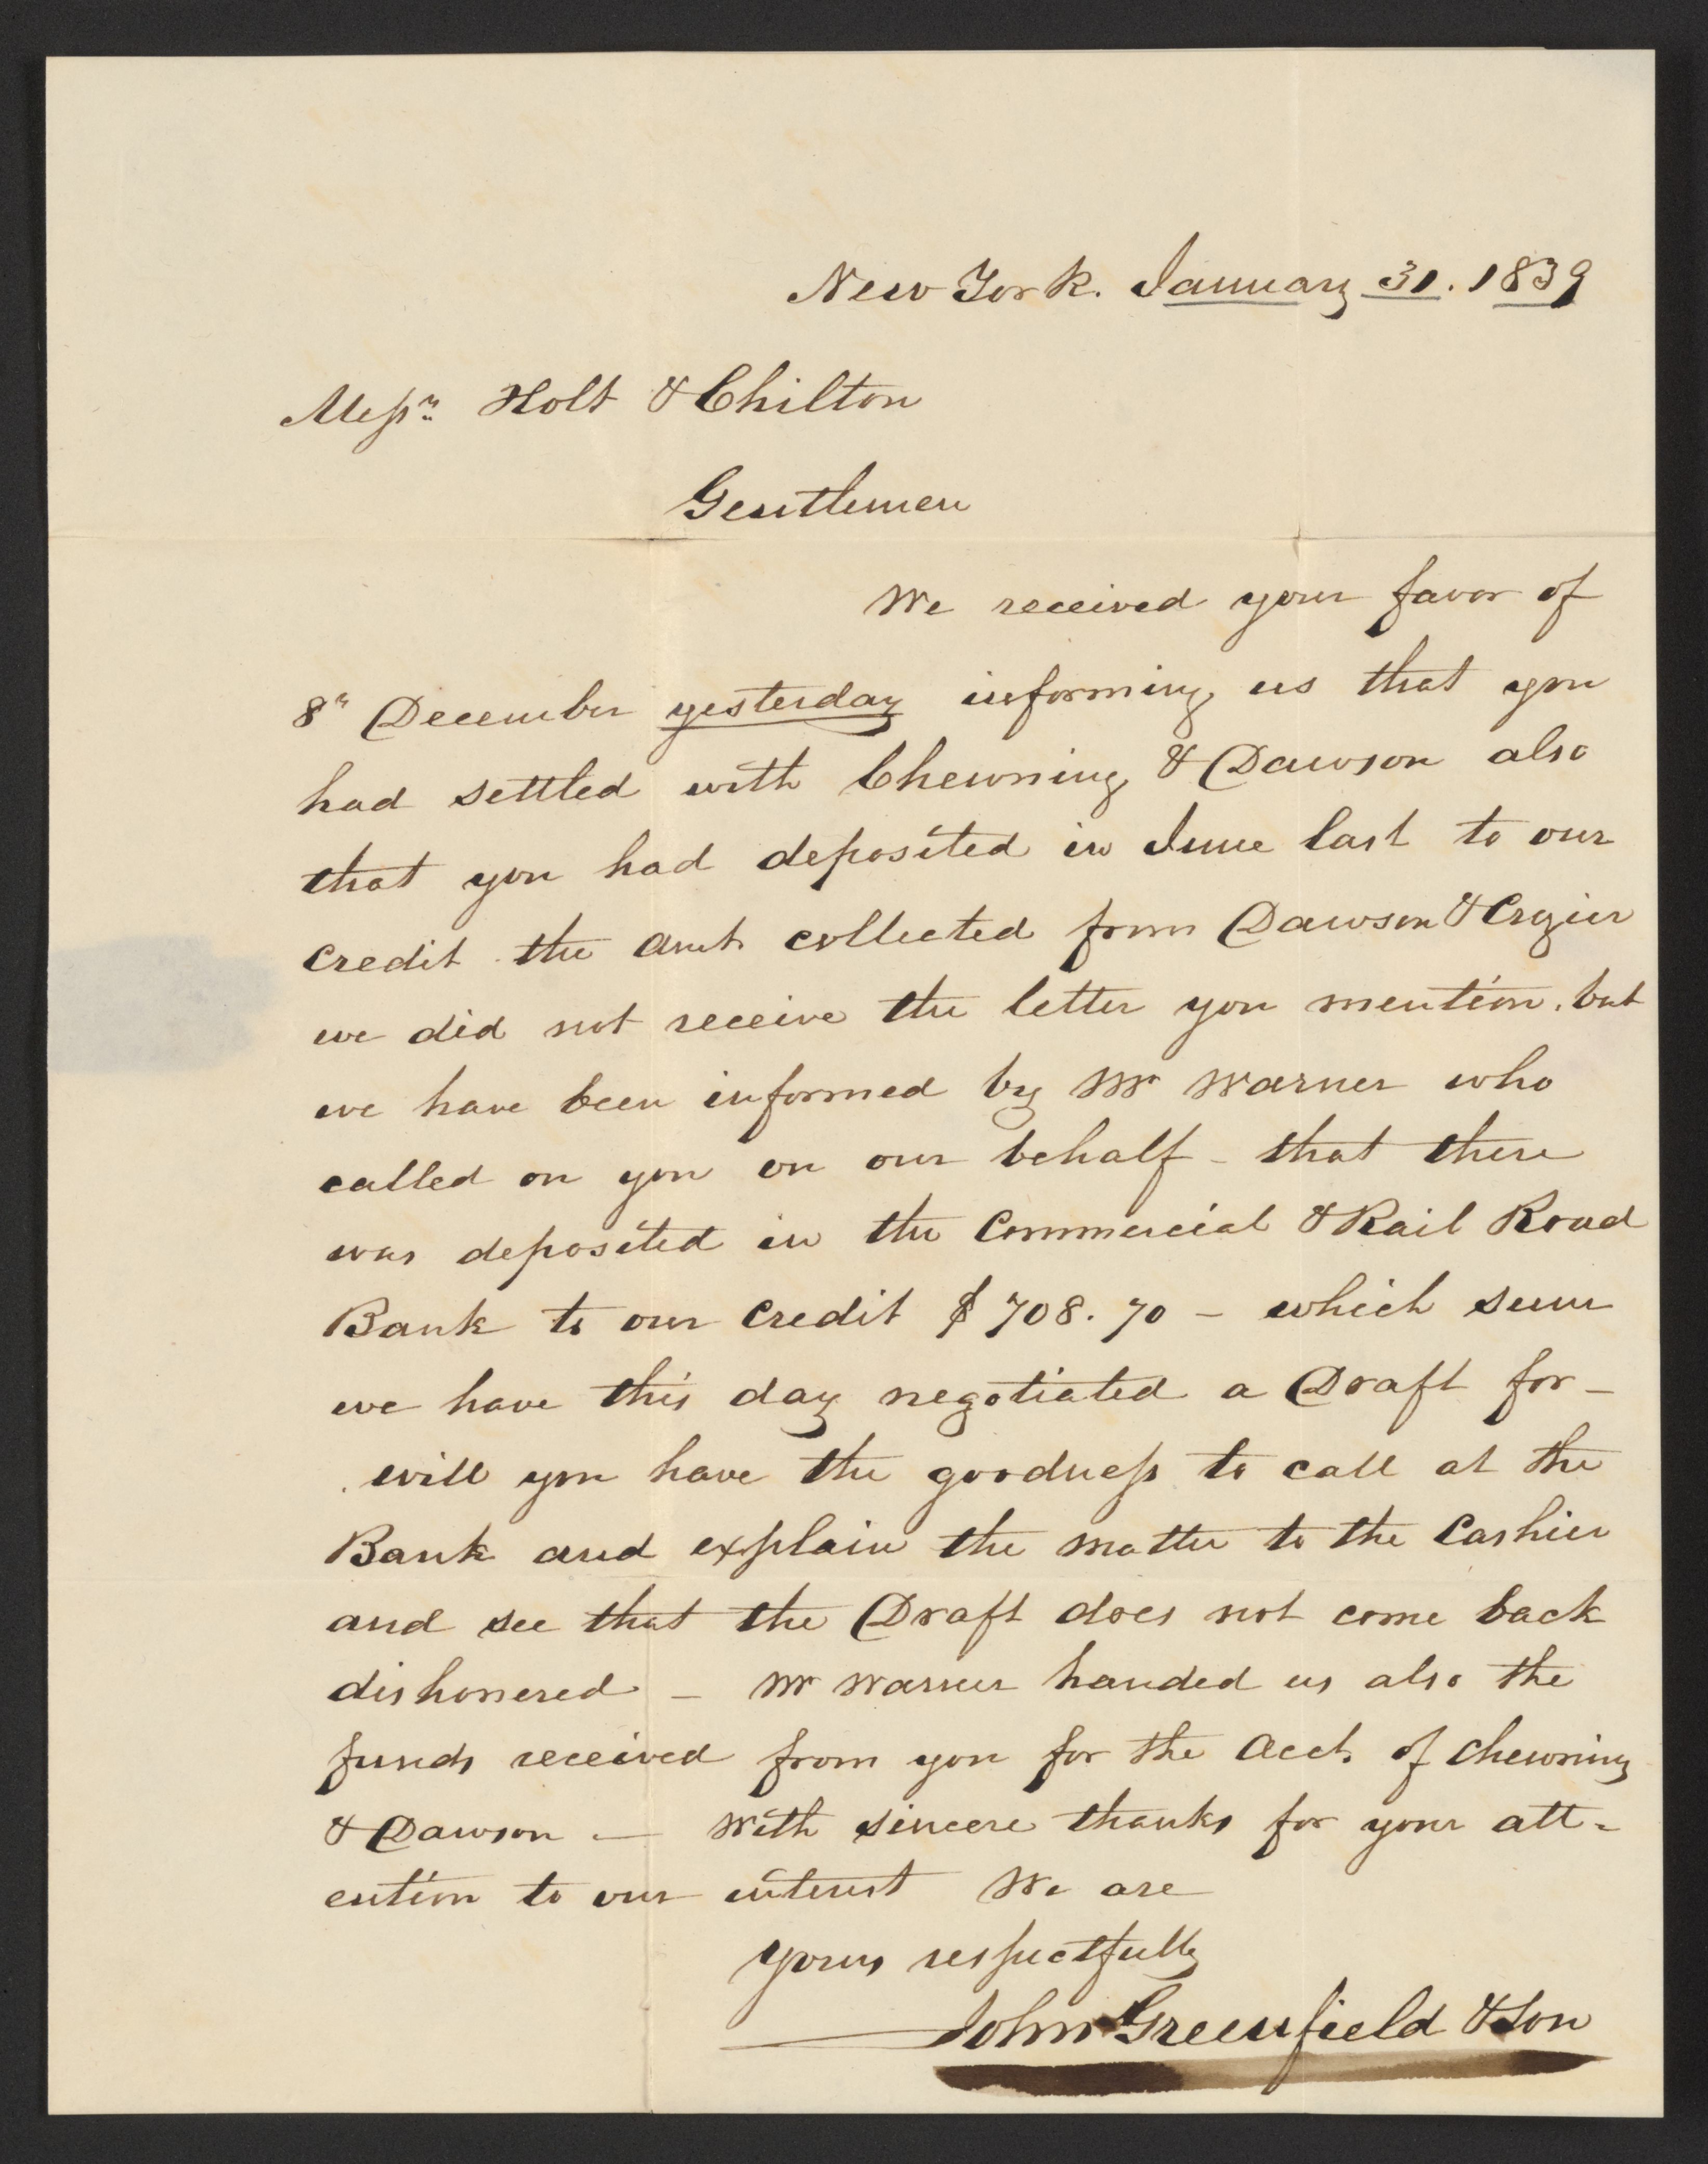 New York. January 31. 1839
Messrs Holt & Chilton
Gentlemen
We received your favor of
8th December yesterday informing us that you
had settled with Chewning & Dawson also
that you had deposited in June last to our
credit the amt. collected from Dawson & Crozier
we did not receive the letter you mention. but
we have been informed by Mr Warner who
called on you on our behalf - that there
was deposited in the Commercial & Rail Road
Bank to our credit $708.70 - which sum
we have this day negotiated a Draft for -
will you have the goodness to call at the
Bank and explain the matter to the Cashier
and see that the Draft does not come back
dishonered - Mr Warner handed us also the
funds received from you for the acct. of Chewning
& Dawson - With sincere thanks for your att-
ention to our interest We are
yours respectfully
John Greenfield & Son